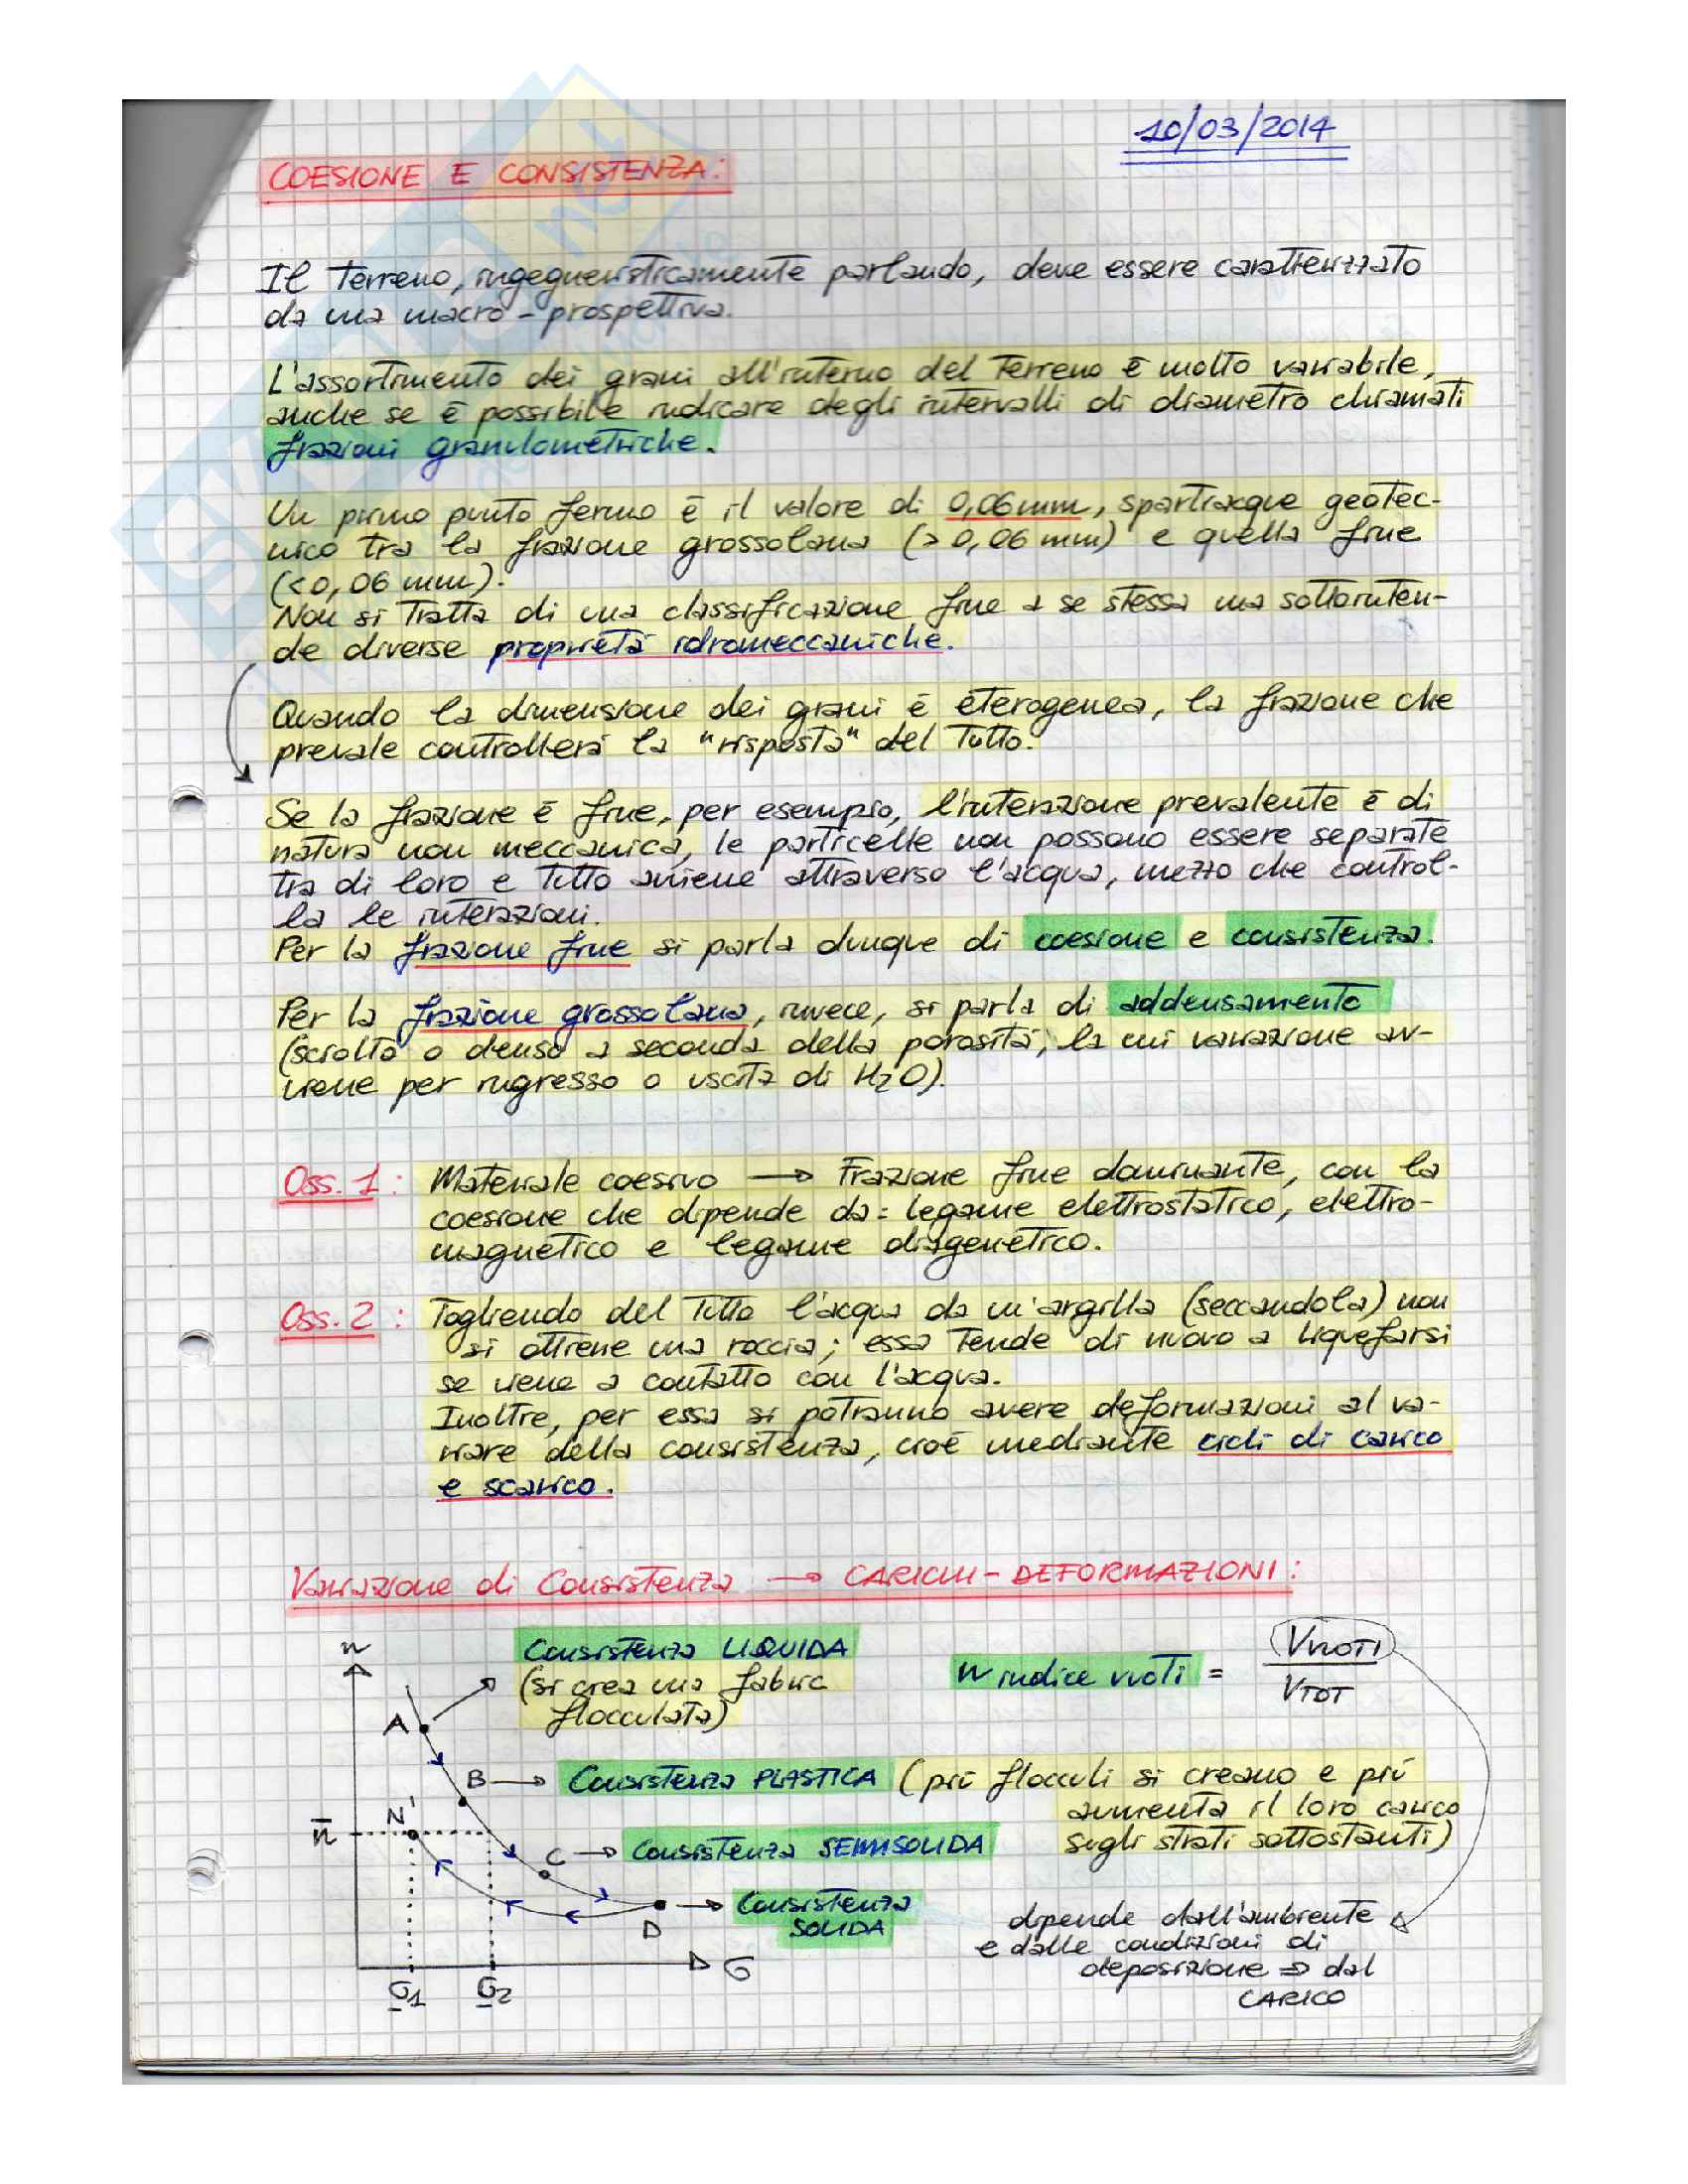 10/03/2014
COESIONE E CONSISTENZA:
Il terreno, ingegneristicamente parlando, deve essere caratterizzato
da una macro-prospettiva.
L'assortimento dei grani all'interno del terreno è molto variabile,
anche se è possibile indicare degli intervalli di diametro chiamati
frazioni granulometriche.
Un primo punto fermo è il valore di 0,06mm, spartiacque geotec-
nico tra la frazione grossolana (>0,06 mm) e quella fine
(<0,06 mm).
Non si tratta di una classificazione fine a se stessa ma sottointen-
de diverse proprietà idromeccaniche.
Quando la dimensione dei grani è eterogenea, la frazione che
prevale controllerà la "risposta" del tutto.
Se la frazione è fine, per esempio, l'interazione prevalente è di
natura non meccanica, le particelle non possono essere separate
tra di loro e tutto avviene attraverso l'acqua, mezzo che control-
la le interazioni.
Per la frazione fine si parla dunque di coesione e consistenza.
Per la frazione grossolana, invece, si parla di addensamento
(sciolto o denso a seconda della porosità, la cui variazione av-
viene per ingresso o uscita di H2O).
Oss. 1: Materiale coesivo → Frazione fine dominante, con la
coesione che dipende da: legame elettrostatico, elettro-
magnetico e legame diagenetico.
Oss. 2: Togliendo del tutto l'acqua da un'argilla (seccandola) non
si ottiene una roccia; essa tende di nuovo a liquefarsi
se viene a contatto con l'acqua.
Inoltre, per essa si potranno avere deformazioni al va-
riare della consistenza, cioè mediante cicli di carico
e scarico.
Variazione di Consistenza → CARICHI-DEFORMAZIONI:
n
Consistenza LIQUIDA
(si crea una fabric
flocculata)
n indice vuoti = VVUOTI / VTOT
A
B → Consistenza PLASTICA (più flocculi si creano e più
aumenta il loro carico
sugli strati sottostanti)
N'
n̄
C → Consistenza SEMISOLIDA
D → Consistenza
SOLIDA
dipende dall'ambiente
e dalle condizioni di
deposizione ⇒ dal
CARICO
σ
σ1 σ2